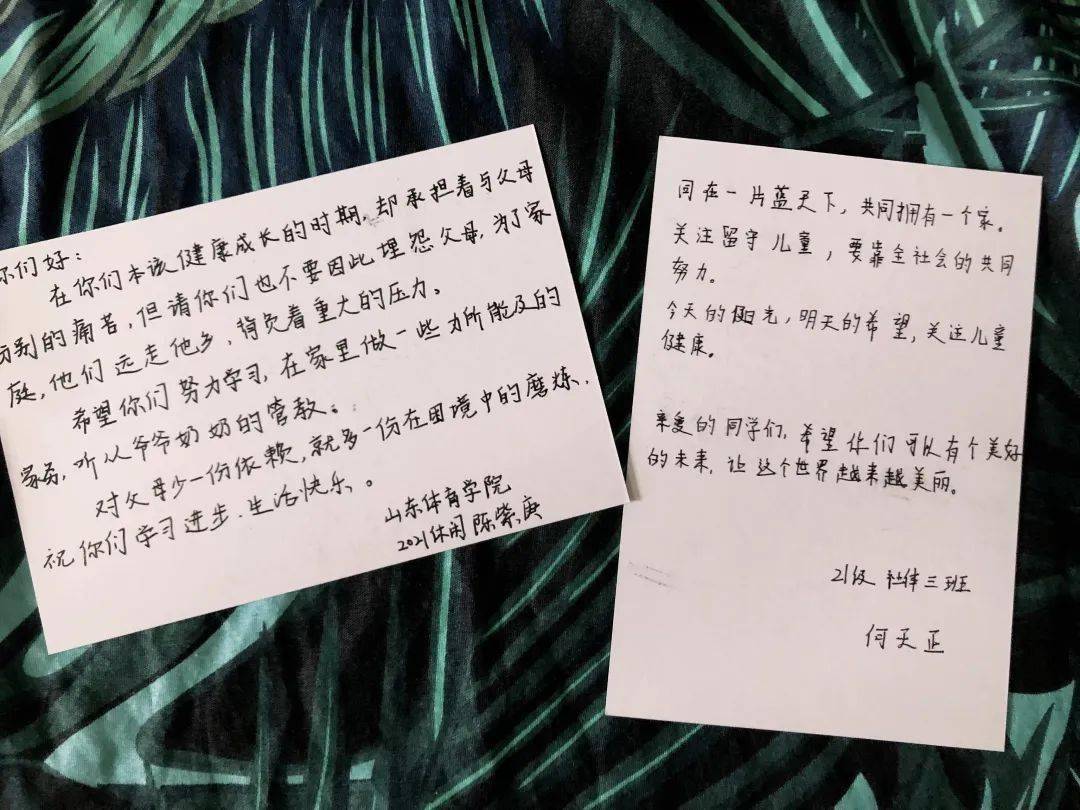 你们好：
在你们本该健康成长的时期，却承担着与父母
分别的痛苦，但请你们也不要因此埋怨父母，为了家
庭，他们远走他乡，背负着重大的压力。
希望你们努力学习，在家里做一些力所能及的
家务，听从爷爷奶奶的管教。
对父母少一份依赖，就多一份在困境中的磨炼，
祝你们学习进步、生活快乐。
山东体育学院
2021休闲 陈紫庚
同在一片蓝天下，共同拥有一个家。
关注留守儿童，要靠全社会的共同
努力。
今天的阳光，明天的希望，关注儿童
健康。
亲爱的同学们，希望你们可以有个美好
的未来，让这个世界越来越美丽。
21级 社体三班
何天正